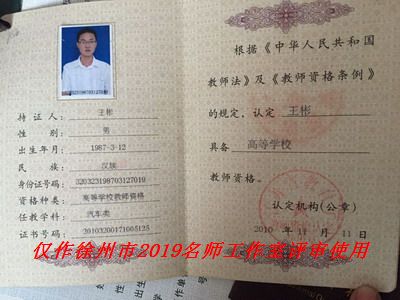 持证人： 王彬
性别： 男
出生年月： 1987-3-12
民族： 汉族
身份证号码： 320323198703127019
资格种类： 高等学校教师资格
任教学科： 汽车类
证书号码： 20103200171005125
根据《中华人民共和国
教师法》及《教师资格条例》
的规定，认定 王彬
具备 高等学校
教师资格。
认定机构(公章)
2010 年 11 月 11 日
仅作徐州市2019名师工作室评审使用